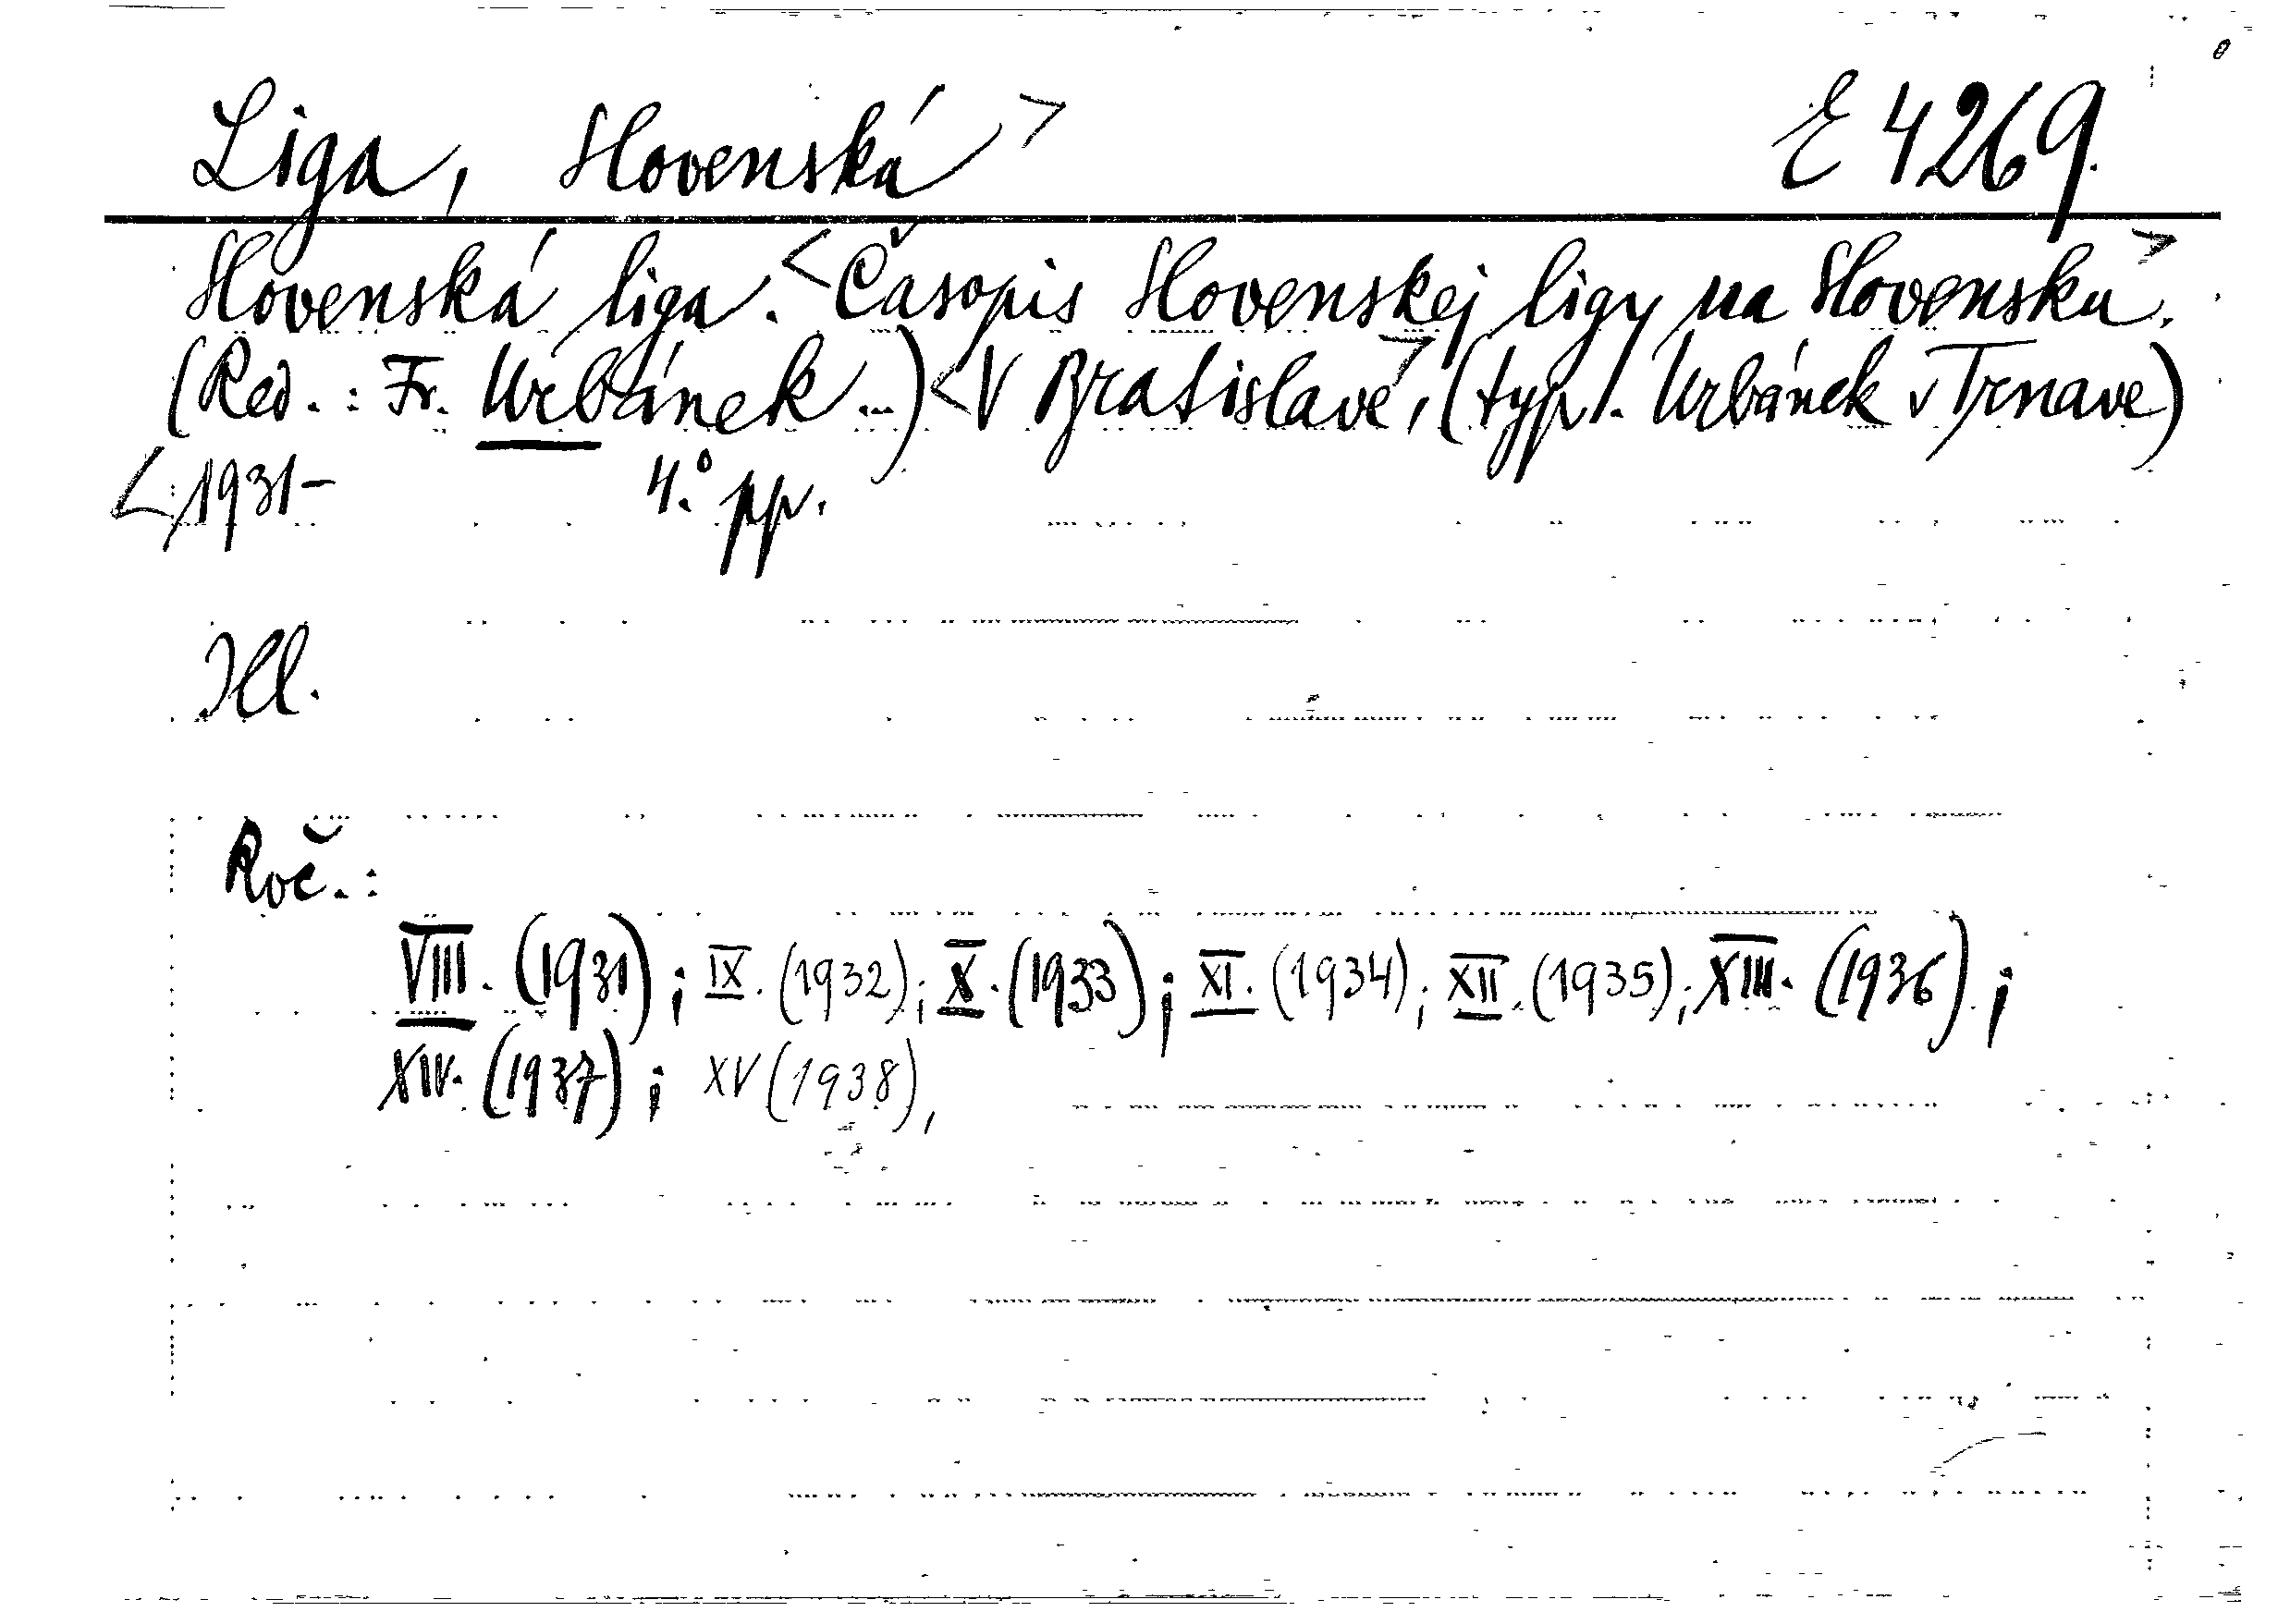 Liga, Slovenská > E 4269.
Slovenská liga. <Časopis Slovenskej ligy na Slovensku.>
(Red.: Fr. Urbánek...) <V Bratislave>, (typ. Urbánek v Trnave)
<1931- 4.° pp.
Ill.
Roč.:
VIII. (1931); IX. (1932); X. (1933); XI. (1934); XII. (1935); XIII. (1936);
XIV. (1937); XV (1938),